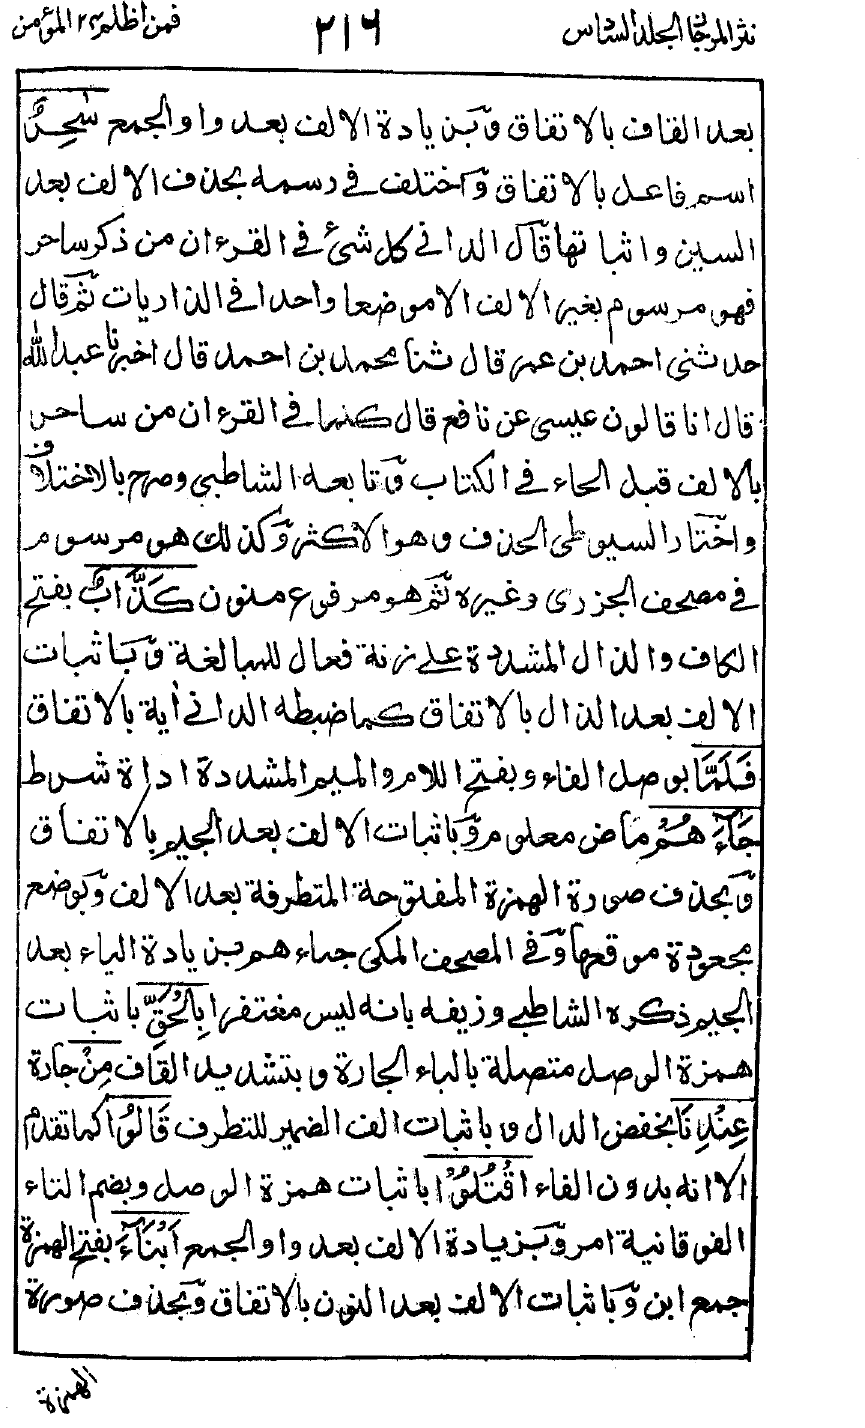 نثر المرجان الجلد السادس ٢١٦ فمن اظلم ٢٤ المؤمن
بعد القاف بالاتفاق وبزيادة الالف بعد واو الجمع سٰحِرٌ
اسم فاعل بالاتفاق واختلف في رسمه بحذف الالف بعد
السين واثباتها قال الداني كل شئ في القرءان من ذكر ساحر
فهو مرسوم بغير الالف الا موضعا واحدا في الذاريات ثم قال
حدثني احمد بن عمر قال ثنا محمد بن احمد قال اخبرنا عبد الله
قال انا قالون عيسى عن نافع قال كلما في القرءان من ساحر
بالالف قبل الحاء في الكتاب وتابعه الشاطبي وصرح بالاختلاف
واختار السيوطي الحذف وهو الاكثر وكذلك هو مرسوم
في مصحف الجزري وغيره ثم هو مرفوع منون كَذَّابٌ بفتح
الكاف والذال المشددة على زنة فعال للمبالغة وباثبات
الالف بعد الذال بالاتفاق كما ضبطه الداني أية بالاتفاق
فَلَمَّا بوصل الفاء وبفتح اللام والميم المشددة اداة شرط
جَآءَهُمْ ماض معلوم وباثبات الالف بعد الجيم بالاتفاق
وبحذف صورة الهمزة المفتوحة المتطرفة بعد الالف وبوضع
مجعودة موقعها وفي المصحف المكي جياءهم بزيادة الياء بعد
الجيم ذكره الشاطبي وزيفه بانه ليس مغتفرا بِالْحَقِّ باثبات
همزة الوصل متصلة بالباء الجارة وبتشديد القاف مِنْ جارة
عِنْدِنَا بخفض الدال وباثبات الف الضمير للتطرف قَالُوا كما تقدم
الا انه بدون الفاء اقْتُلُوْا باثبات همزة الوصل وبضم التاء
الفوقانية امر وبزيادة الالف بعد واو الجمع اَبْنَآءَ بفتح الهمزة
جمع ابن وباثبات الالف بعد النون بالاتفاق وبحذف صورة
الهمزة